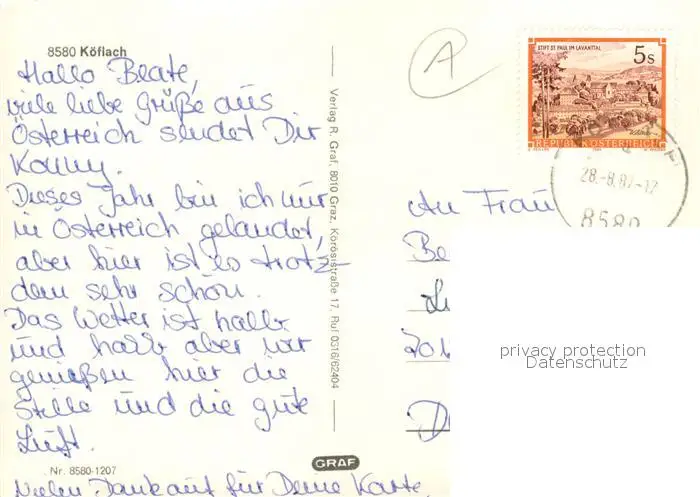 8580 Köflach
Hallo Beate,
viele liebe Grüße aus
Österreich sendet Dir
Conny.
Dieses Jahr bin ich nur
in Österreich gelandet,
aber hier ist es trotz-
dem sehr schön.
Das Wetter ist halb
und halb aber wir
genießen hier die
Stille und die gute
Luft.
Nr. 8580-1207
Vielen Dank auf für Deine Karte,
Verlag R. Graf, 8010 Graz, Korösistraße 17, Ruf 0316/62404
GRAF
A
STIFT ST. PAUL IM LAVANTTAL
5s
REPUBLIK ÖSTERREICH
28.-8.87-12
8580
An Frau
Be
privacy protection
Datenschutz